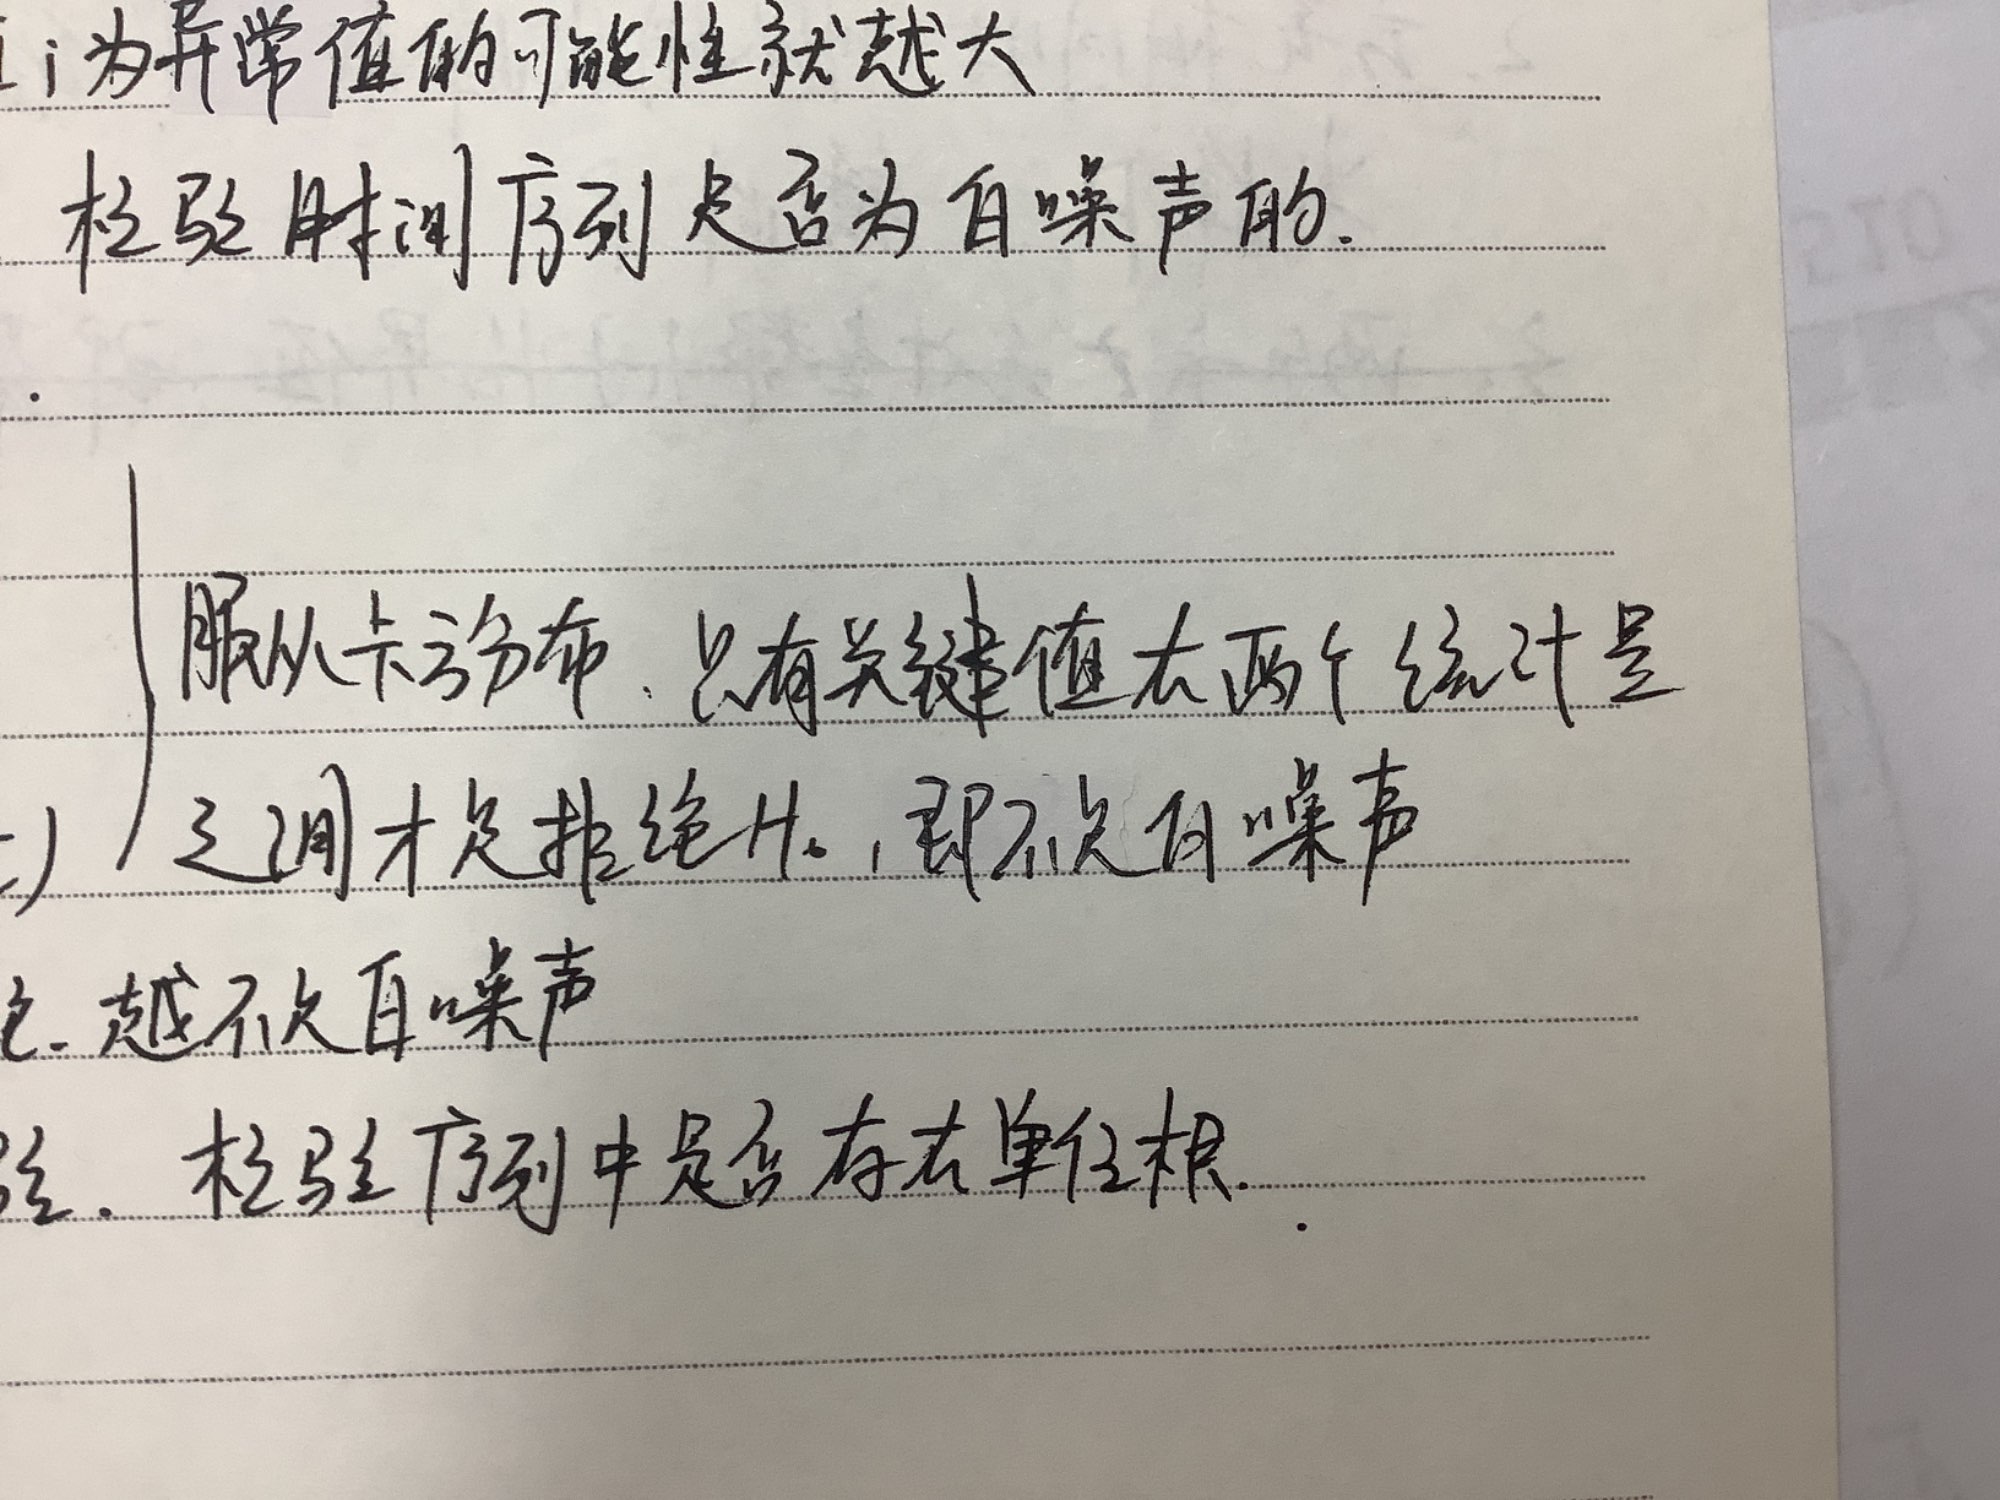 i为异常值的可能性就越大
检验时间序列是否为白噪声的.
服从卡方分布、只有关键值在两个统计量
之间才是拒绝H₀,即不是白噪声
越不是白噪声
验. 检验序列中是否存在单位根.